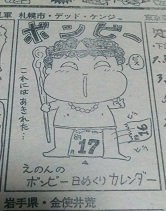 札幌市・デッド・ケンジ
ボンビー
これには
あきれた…
17
えのんの
ボンビー日めくりカレンダー
岩手県・金使井荒